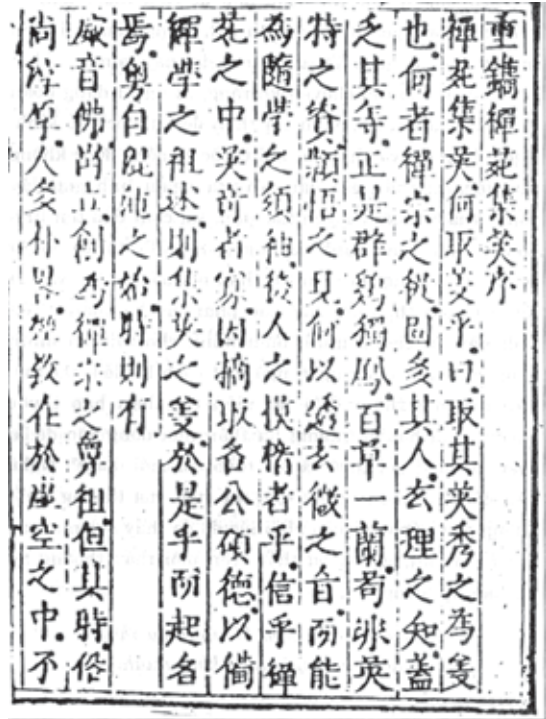 重鐫禪苑集英序
禪苑集英何取義乎曰取其英秀之為義
也何者禪宗之從固多其人玄理之知蓋
乏其等正是群鷄獨鳳百草一蘭苟非英
特之資穎悟之見何以透玄微之旨而能
為隨學之領袖後人之模楷者乎信乎禪
苑之中英奇者寡因摘取各公碩德以備
禪學之祖述則集英之義於是乎而起名
焉粤自混沌之始時則有
威音佛尚立創為禪宗之鼻祖但其時俗
尚淳厚人多朴畧教在於虛空之中不